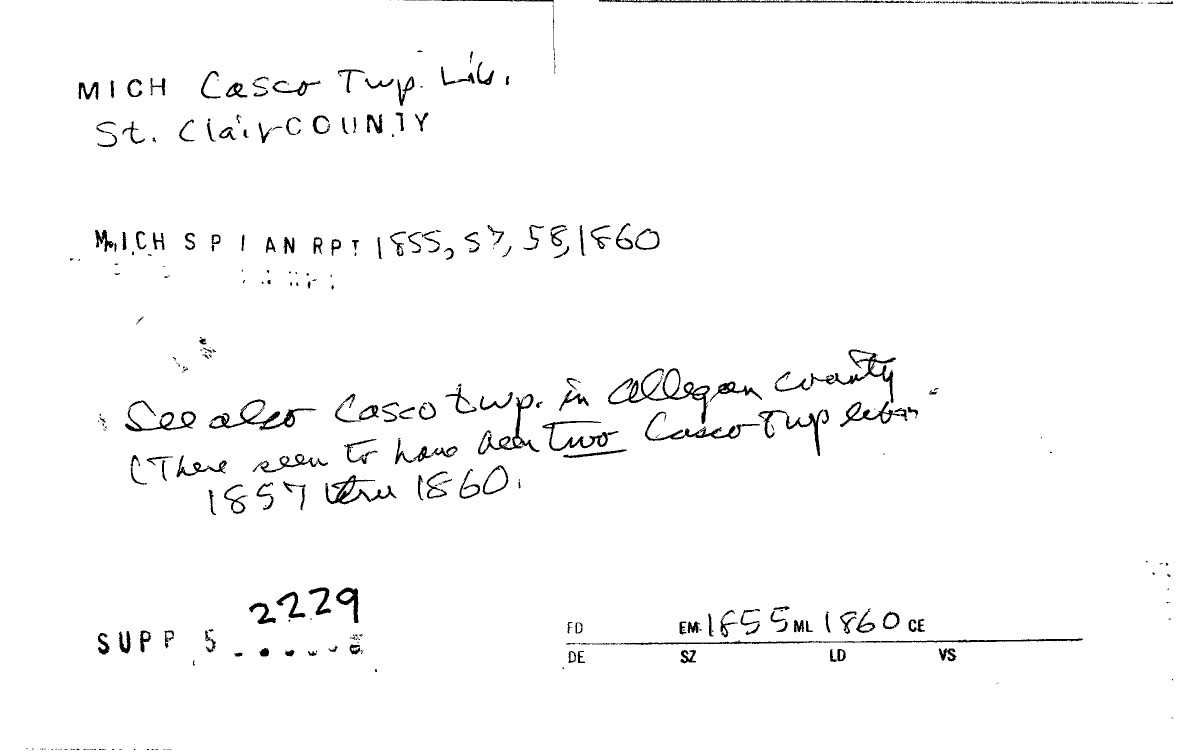 MICH Casco Twp. Lib.
St. Clair COUNTY
MICH SPI AN RPT 1855, 57, 58, 1860
See also Casco twp. in Allegan County
(There seem to have been two Casco Twp libr.
1857 thru 1860.
2229
SUPP 5
FD EM 1855 ML 1860 CE
DE SZ LD VS